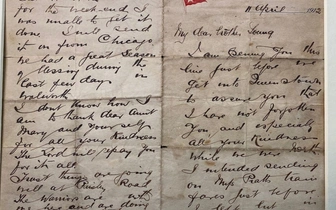 11 April 1912
My dear Brother Young
I am sending you this
line just before we
get into Queenstown
to assure you that
I have not forgotten
you and especially
all your kindness
while we were North
I intended sending
on Mrs Pratt's train
fares just before
for the weekend I
was unable to get it
done I will send
it on from Chicago
We had a great season
of blessing during the
last few days in
Walworth
I don't know how I
am to thank dear Aunt
Mary and yourself
for all your kindness
The Lord will repay you
for it all.
Trust things are going
well at Paisley Road
The Warriors are with
me here and are doing